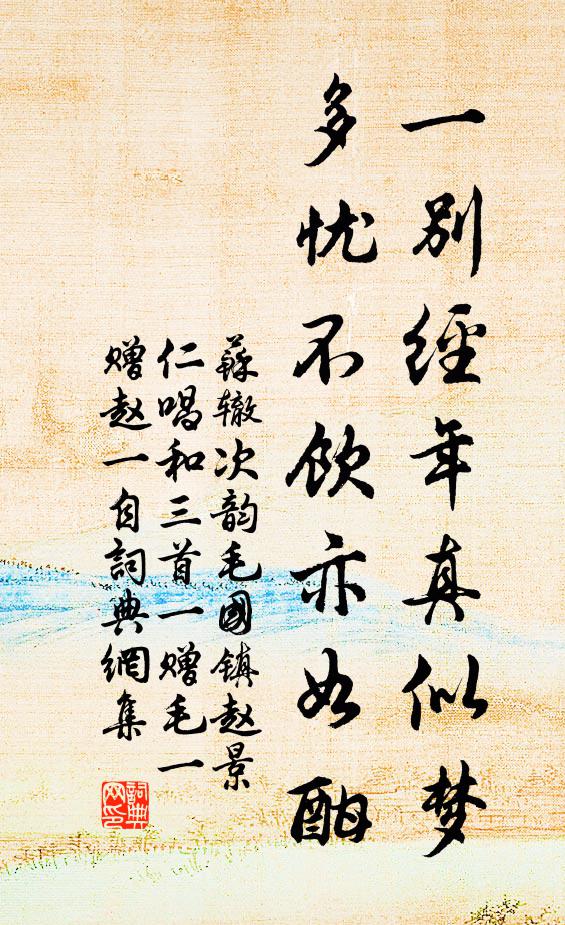 一别經年真似梦
多忧不飲亦如酣
蘇辙次韵毛國镇赵景
仁唱和三首一赠毛一
赠赵一自詞典網集
詞典
网印